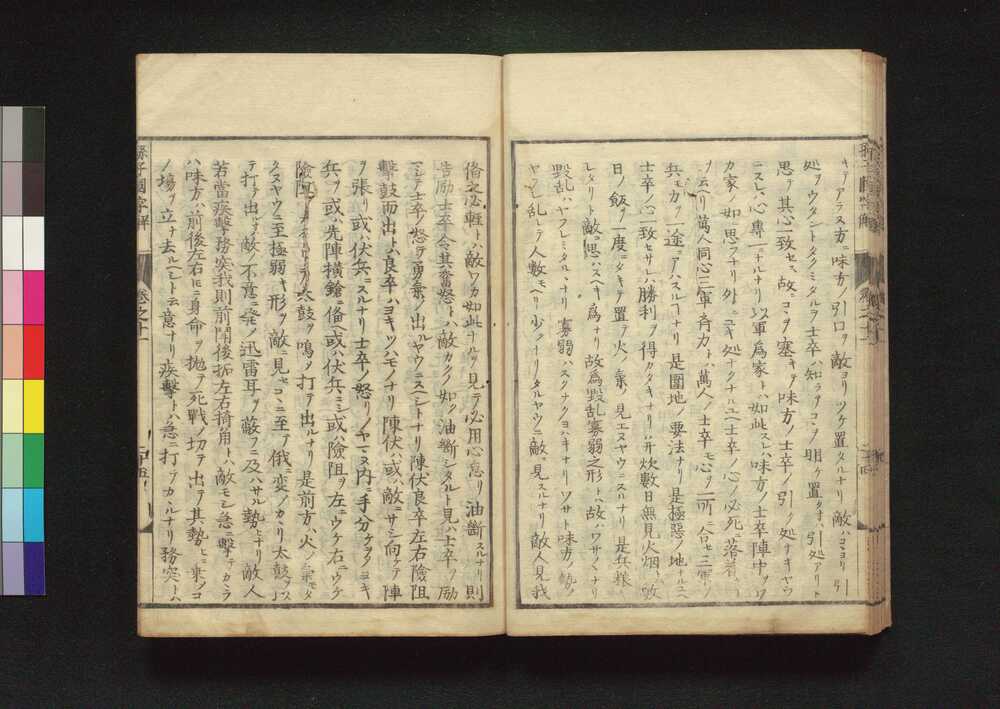 キヲアラス方ニ味方ノ引口ヲ敵ヨリツケ置タルナリ敵ハコヽヨリ引
処ヲウタントタクミタルヲ士卒ハ知ラテコヽノ明ケ置タレハ引処アリト
思テ其心一致セス故ニコヽヲ塞キテ味方ノ士卒ノ引ク処ナキヤウ
ニスレハ心專一ナルナリ以軍爲家トハ如此スレハ味方ノ士卒陣中ヲワ
カ家ノ如思フナリ外ニユキ処ナクナルユヘ士卒ノ心必死ニ落着
ヲ云ナリ萬人同心三軍斉力トハ萬人ノ士卒モ心ヲ一所ニ合セ三軍ノ
兵モ力ヲ一途ニアハスルナリ是圍地ノ要法ナリ是極惡ノ地ナルユヘ
士卒ノ心一致セサレハ勝利ヲ得カタキナリ并炊數日無見火烟トハ數
日ノ飯ヲ一度ニタキテ置テ火ノ氣ノ見エヌヤウニスルナリ是兵粮
レタリト敵ニ思ハスヘキ爲ナリ故爲毀乱寡弱之形トハ故ハワサトナリ
毀乱ハヤフレミタルヽナリ寡弱ハスクナクヨハキナリワサト味方ノ勢ノ
ヤフレ乱レテ人數モヘリ少クナリタルヤウニ敵ニ見スルナリ敵人見我
備之必輕トハ敵ワカ如此ナルヲ見テ必用心怠リ油斷スルナリ則
告励士卒令其奮怒トハ敵カクノ如ク油斷シタルト見ハ士卒ヲ励
マシテ士卒ノ怒テ勇氣ノ出ルヤウニスヘシトナリ陳伏良卒左右險阻
擊鼓而出トハ良卒ハヨキツハモノナリ陳伏ハ或ハ敵ニサシ向ケテ陣
ヲ張リ或ハ伏兵ニスルナリ士卒ノ怒リノヤマヌ内ニ手分ケヲシテヨキ
兵ヲ或ハ先陣橫鎗ニ備ヘ或ハ伏兵ニシ或ハ險阻ヲ左ニウケ右ニウケ
太鼓ヲ鳴シ打テ出ルナリ是前方ハ火ノ氣モタ
タスヤウニ至極弱キ形ヲ敵ニ見セコヽニ至テ俄ニ変シカヽリ太鼓ニテ
テ打テ出レハ敵ノ不意ニ発ノ迅雷耳ヲ蔽フニ及ハサル勢ヒナリ敵人
若當疾擊務突我則前鬪後拓左右掎角トハ敵モシ急ニ擊テカヽラ
ハ味方ハ前後左右ヒニ身命ヲ抛テ死戰ノ切テ出テ其勢ヒニ乗シコ
ノ塲ヲ立チ去ルヘシト云意ナリ疾擊トハ急ニ打テカヽルナリ務突トハ
孫子國字解
卷之十一